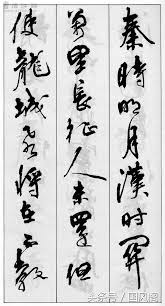 秦時明月漢时關
萬里長征人未還但
使龍城飛將在不教
头条号 /